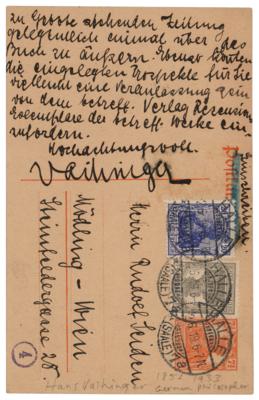 zu Gebote stehenden Zeitung
gelegentlich einmal über das
Buch zu äußern. Vielleicht
die eingelegten Prospekte für Sie
vielleicht eine Veranlassung sein
von dem betreff. Verlag Rezensions
Exemplare der betreff. Werke ein-
zufordern.
Hochachtungsvoll
Vaihinger
Einschreiben
Herrn Rudolf
Mödling - Wien
HALLE
(SAALE)
4
Hans Vaihinger 1852-1933
German philosopher